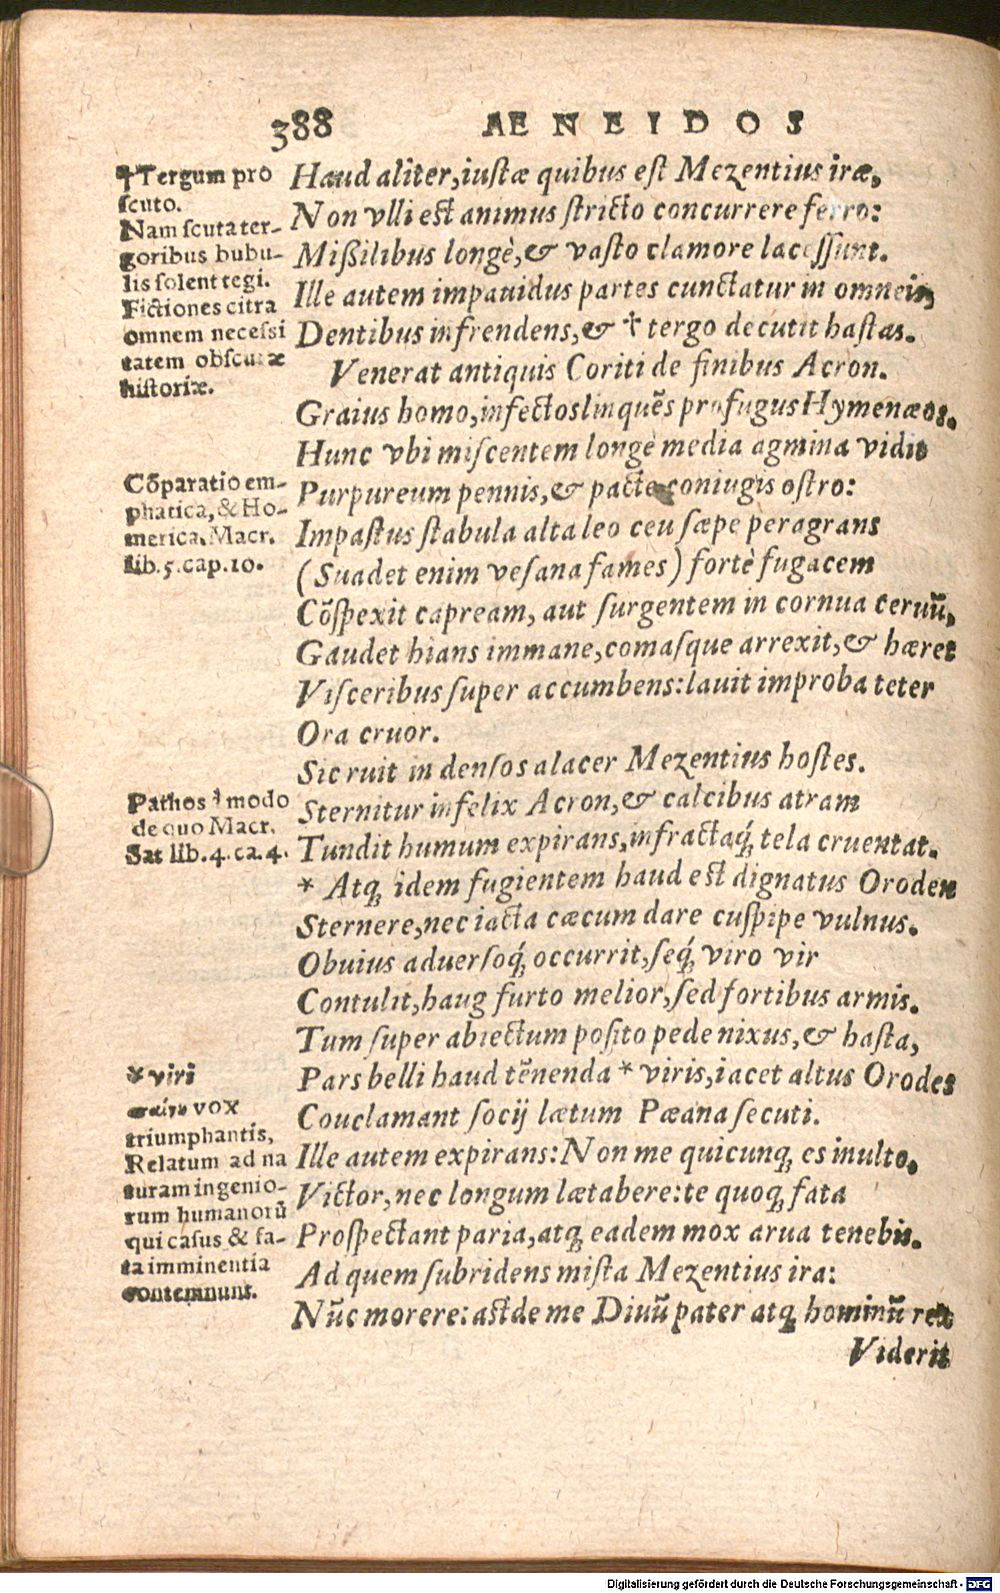 388 AENEIDOS
†Tergum pro
scuto.
Nam scuta ter-
goribus bubu-
lis solent tegi.
Fictiones citra
omnem necessi
tatem obscuræ
historiæ.
Cõparatio em-
phatica, & Ho-
merica. Macr.
lib. 5. cap. 10.
Pathos à modo
de quo Macr.
Sat lib. 4. ca. 4.
* viri
vox
triumphantis,
Relatum ad na
turam ingenio-
rum humanorũ
qui casus & fa-
ta imminentia
contemnunt.
Haud aliter, iustæ quibus est Mezentius iræ,
Non vlli est animus stricto concurrere ferro:
Mißilibus longè, & vasto clamore lacessunt.
Ille autem impauidus partes cunctatur in omneis,
Dentibus infrendens, & † tergo decutit hastas.
Venerat antiquis Coriti de finibus Acron.
Graius homo, infectos linquẽs profugus Hymenæos.
Hunc vbi miscentem longè media agmina vidit
Purpureum pennis, & pactæ coniugis ostro:
Impastus stabula alta leo ceu sæpe peragrans
(Suadet enim vesana fames) fortè fugacem
Cõspexit capream, aut surgentem in cornua ceruũ,
Gaudet hians immane, comasque arrexit, & hæret
Visceribus super accumbens: lauit improba teter
Ora cruor.
Sic ruit in densos alacer Mezentius hostes.
Sternitur infelix Acron, & calcibus atram
Tundit humum expirans, infractaq́; tela cruentat.
* Atq; idem fugientem haud est dignatus Oroden
Sternere, nec iacta cæcum dare cuspipe vulnus.
Obuius aduersoq́; occurrit, seq́; viro vir
Contulit, haug furto melior, sed fortibus armis.
Tum super abiectum posito pede nixus, & hasta,
Pars belli haud tẽnenda * viris, iacet altus Orodes
Couclamant socij lætum Pæana secuti.
Ille autem expirans: Non me quicunq; es inulto,
Victor, nec longum lætabere: te quoq; fata
Prospectant paria, atq; eadem mox arua tenebis.
Ad quem subridens mista Mezentius ira:
Nũc morere: ast de me Diuũ pater atq; hominũ rex
Viderit
Digitalisierung gefördert durch die Deutsche Forschungsgemeinschaft - DFG